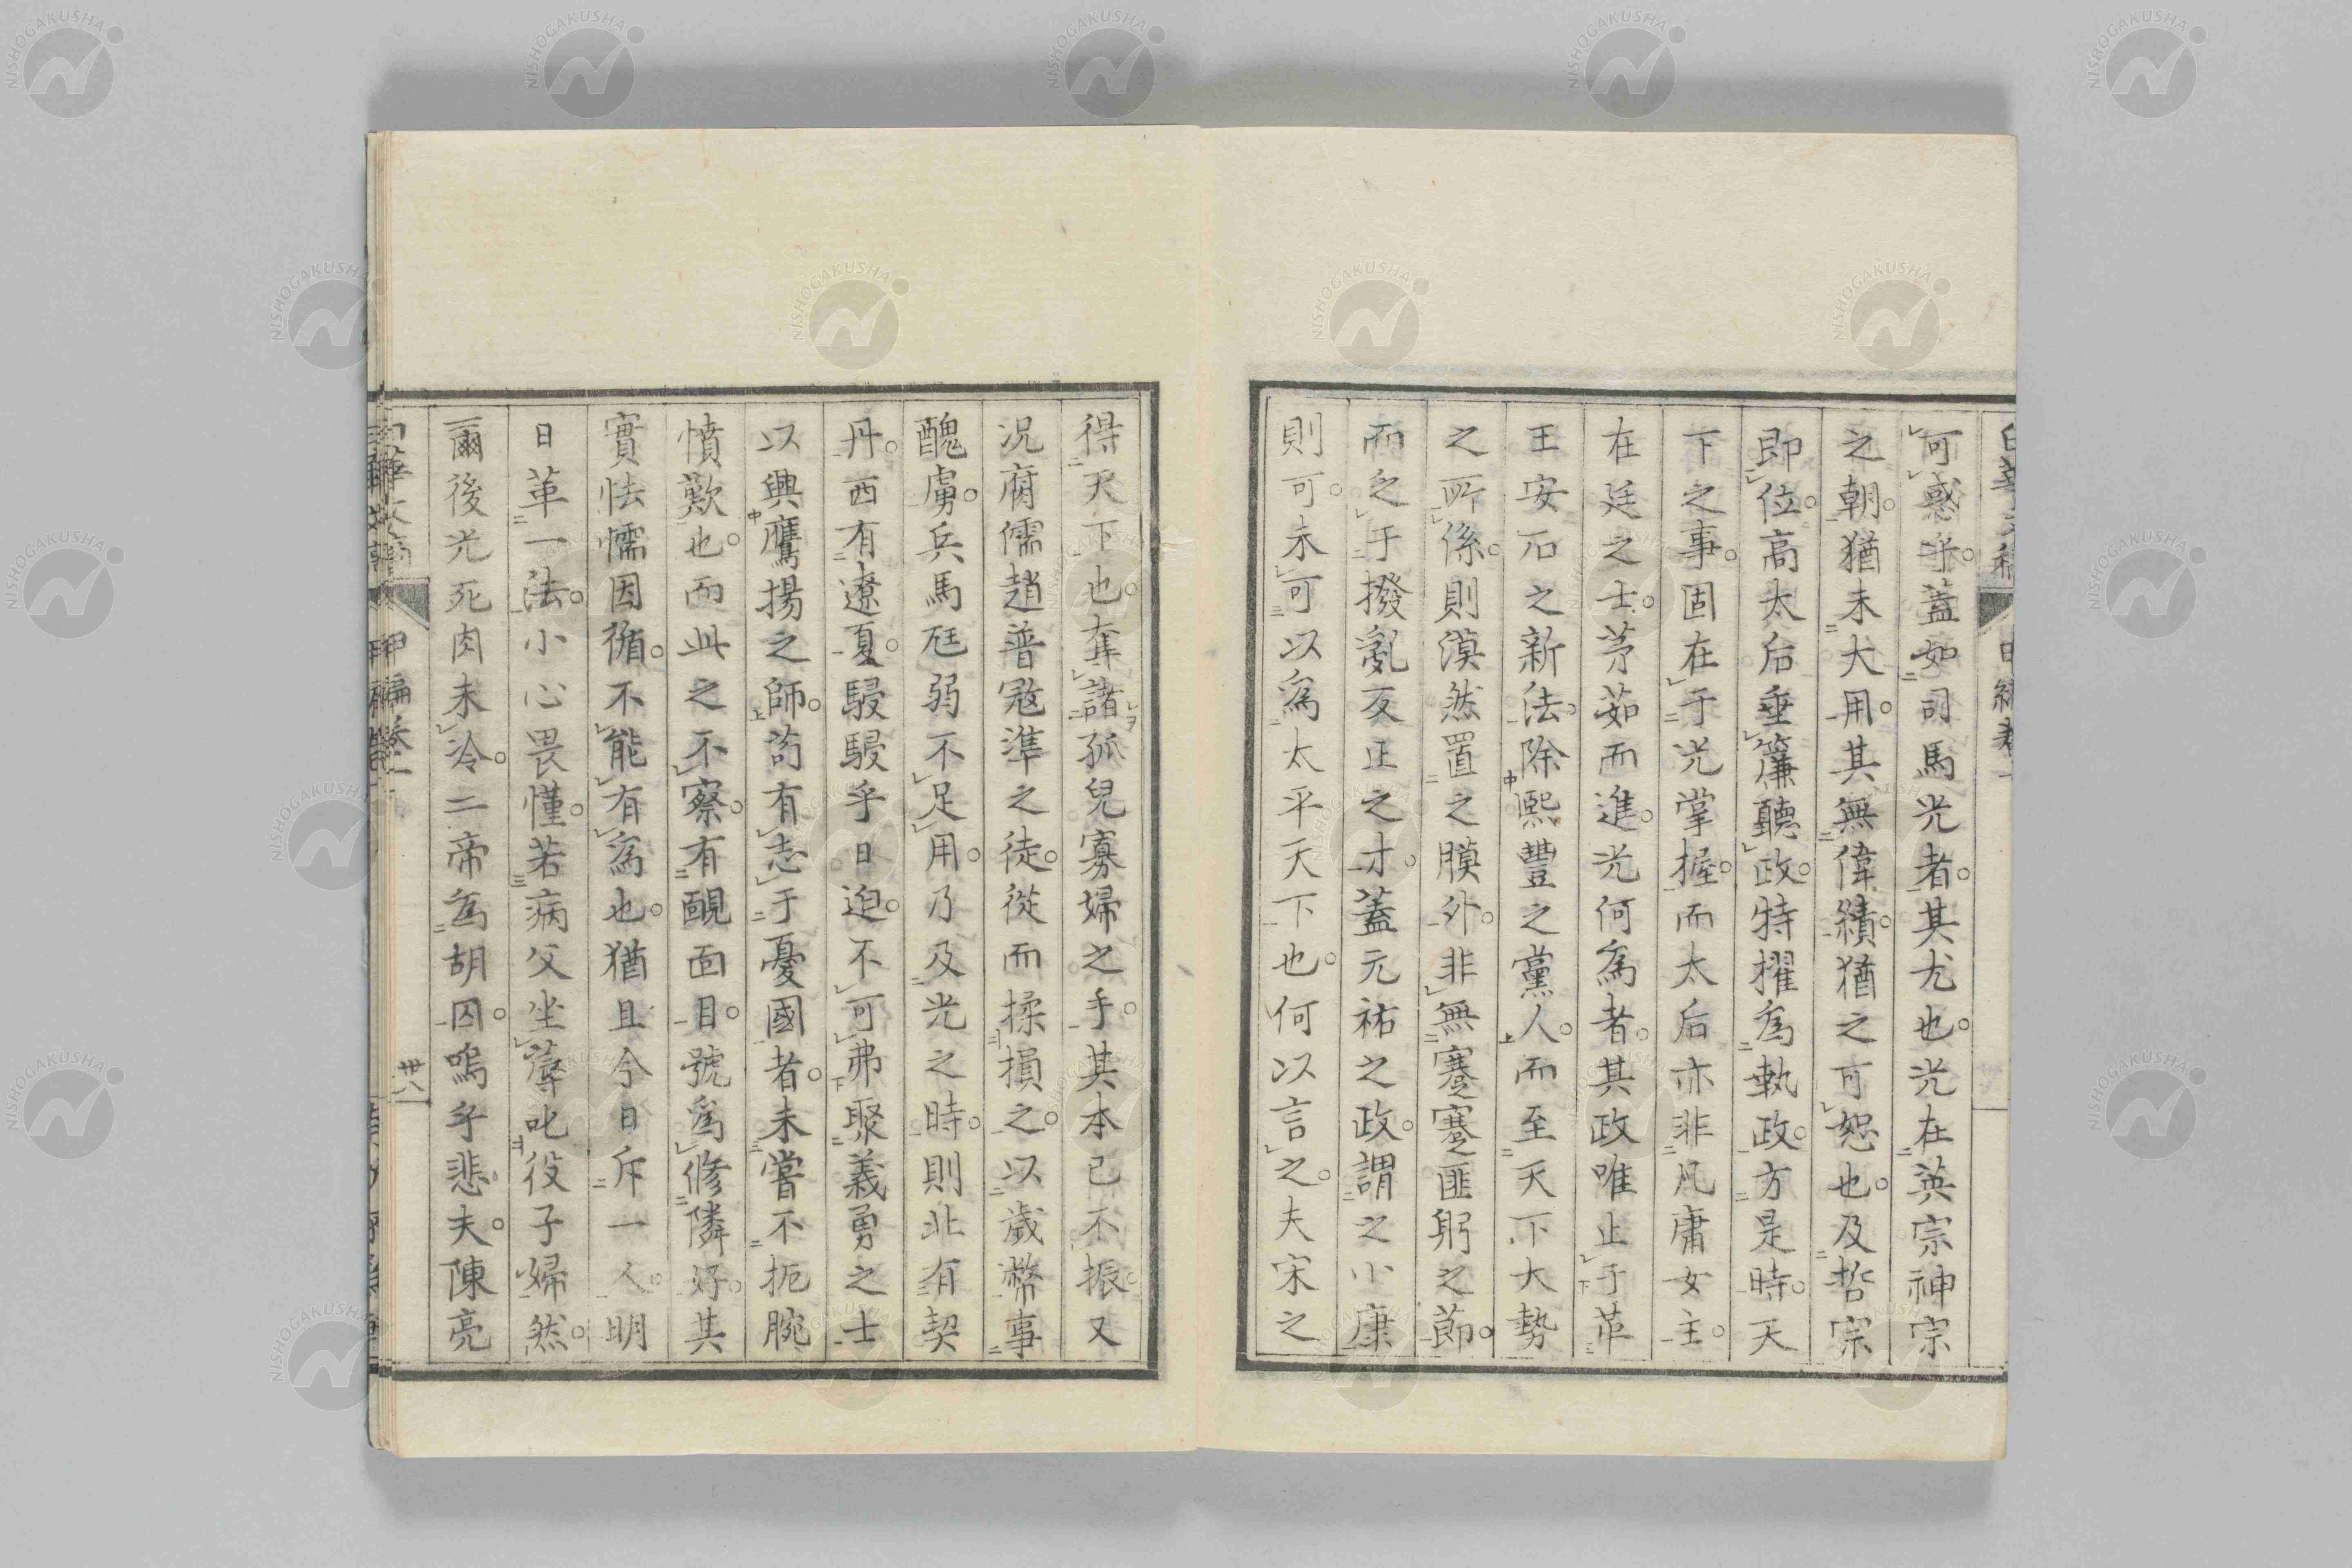 可惑乎。蓋如司馬光者。其尤也。光在英宗神宗
之朝。猶未大用。其無偉績。猶之可恕也。及哲宗
即位。高太后垂簾聽政。特擢為執政。方是時。天
下之事。固在于光掌握。而太后亦非凡庸女主。
在廷之士。茅茹而進。光何為者。其政唯止于革
王安石之新法。除熙豐之黨人。而至天下大勢
之所係。則漠然置之膜外。非無蹇蹇匪躬之節。
而乏于撥亂反正之才。蓋元祐之政。謂之小康
則可。未可以為太平天下也。何以言之。夫宋之
得天下也。奪諸孤兒寡婦之手。其本已不振。又
況腐儒趙普寇準之徒。從而揉損之。以歲幣事
醜虜。兵馬尫弱不足用。乃及光之時。則北有契
丹。西有遼夏。駸駸乎日迫。不可弗聚義勇之士
以興鷹揚之師。苟有志于憂國者。未嘗不扼腕
憤歎也。而此之不察。有靦面目。號為修隣好。其
實怯懦因循。不能有為也。猶且今日斥一人。明
日革一法。小心畏懂。若病父坐蓐叱役子婦然。
爾後光死肉未冷。二帝為胡囚。嗚乎悲夫。陳亮
卅八
NISHOGAKUSHA